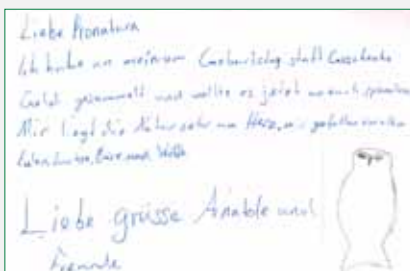 Liebe Pronatura
Ich habe an meinem Geburtstag statt Geschenke
Geld gesammelt und wollte es jetzt an euch spenden
Mir liegt die Natur sehr am Herz, mir gefallen vor allem
Eulen, Luchse, Bäre und Wölfe
Liebe grüsse Anatole und
Freunde